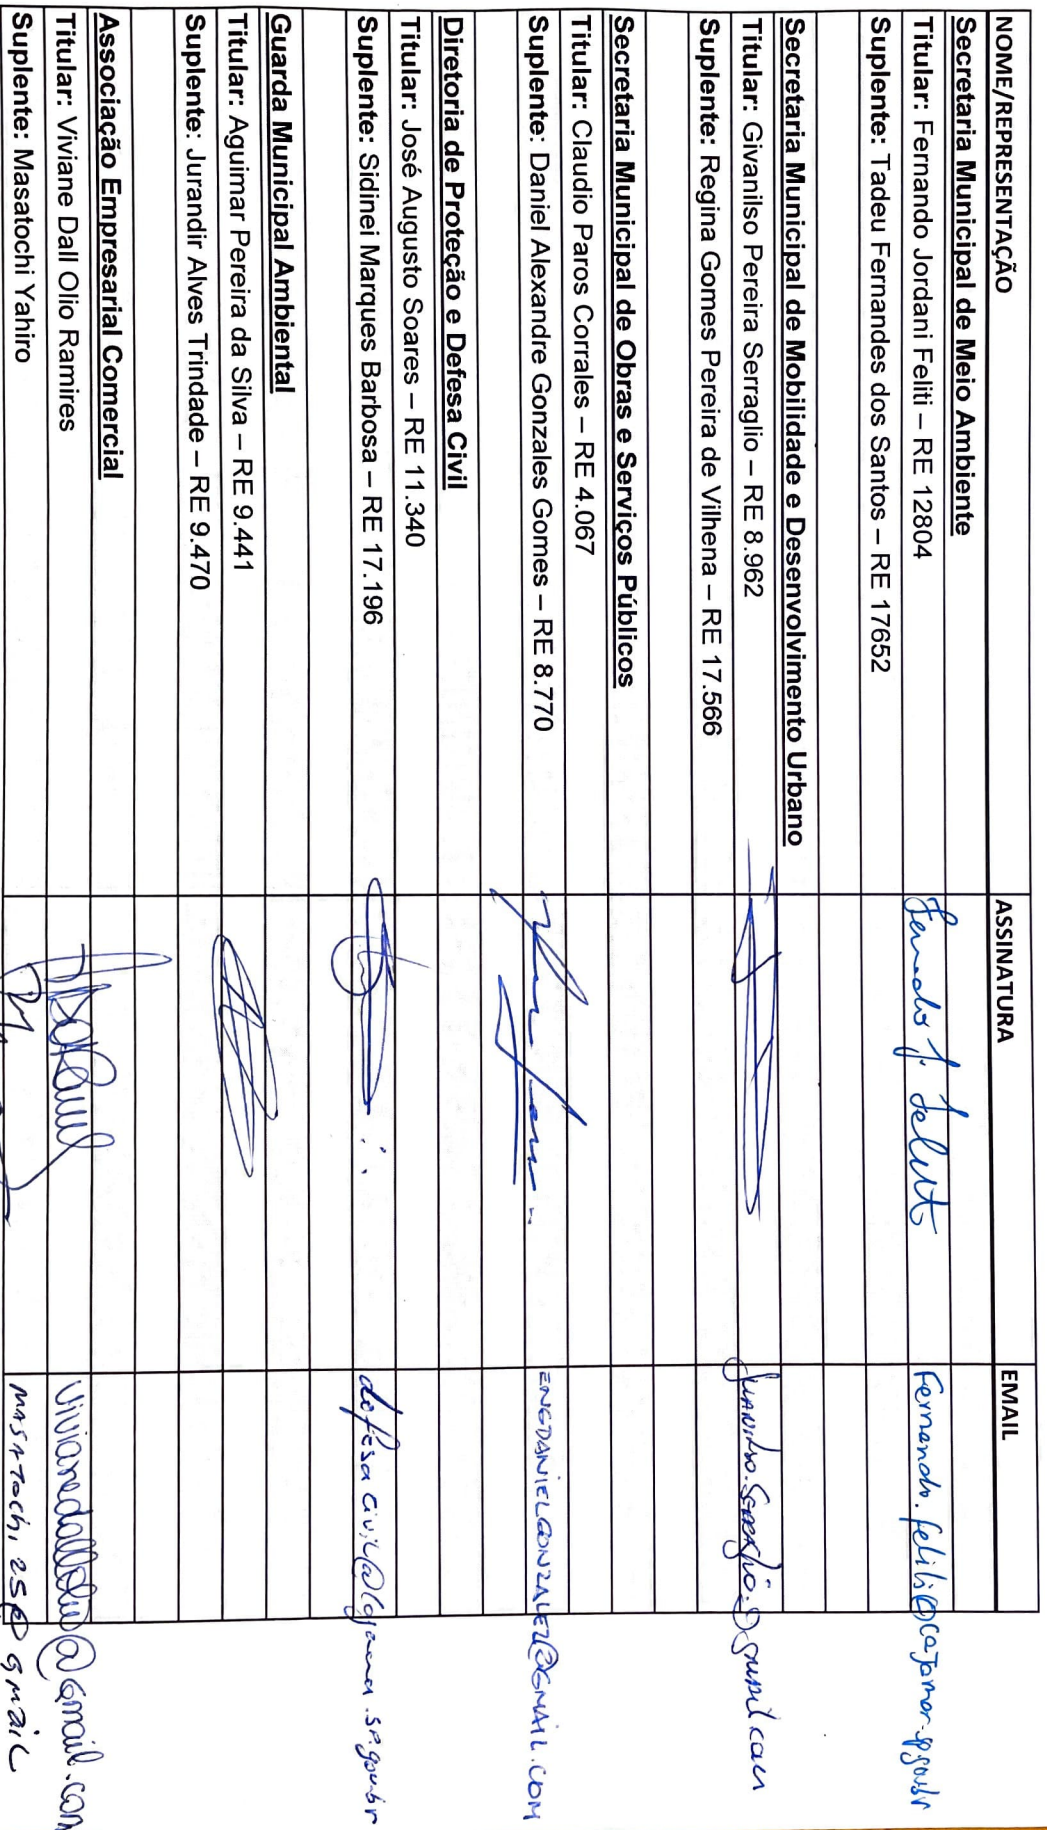 NOME/REPRESENTAÇÃO ASSINATURA EMAIL
Secretaria Municipal de Meio Ambiente
Titular: Fernando Jordani Feliti – RE 12804 Fernando J. Feliti Fernando.feliti@cajamar.sp.gov.br
Suplente: Tadeu Fernandes dos Santos – RE 17652
Secretaria Municipal de Mobilidade e Desenvolvimento Urbano
Titular: Givanilso Pereira Serraglio – RE 8.962
Suplente: Regina Gomes Pereira de Vilhena – RE 17.566
Secretaria Municipal de Obras e Serviços Públicos
Titular: Claudio Paros Corrales – RE 4.067
Suplente: Daniel Alexandre Gonzales Gomes – RE 8.770 ENGDANIELGONZALEZ@GMAIL.COM
Diretoria de Proteção e Defesa Civil
Titular: José Augusto Soares – RE 11.340
Suplente: Sidinei Marques Barbosa – RE 17.196 defesacivil@cajamar.sp.gov.br
Guarda Municipal Ambiental
Titular: Aguimar Pereira da Silva – RE 9.441
Suplente: Jurandir Alves Trindade – RE 9.470
Associação Empresarial Comercial
Titular: Viviane Dall Olio Ramires @gmail.com
Suplente: Masatochi Yahiro MASATOCHI25@GMAIL